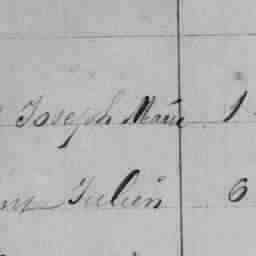 Joseph Marie 1
Julien 6